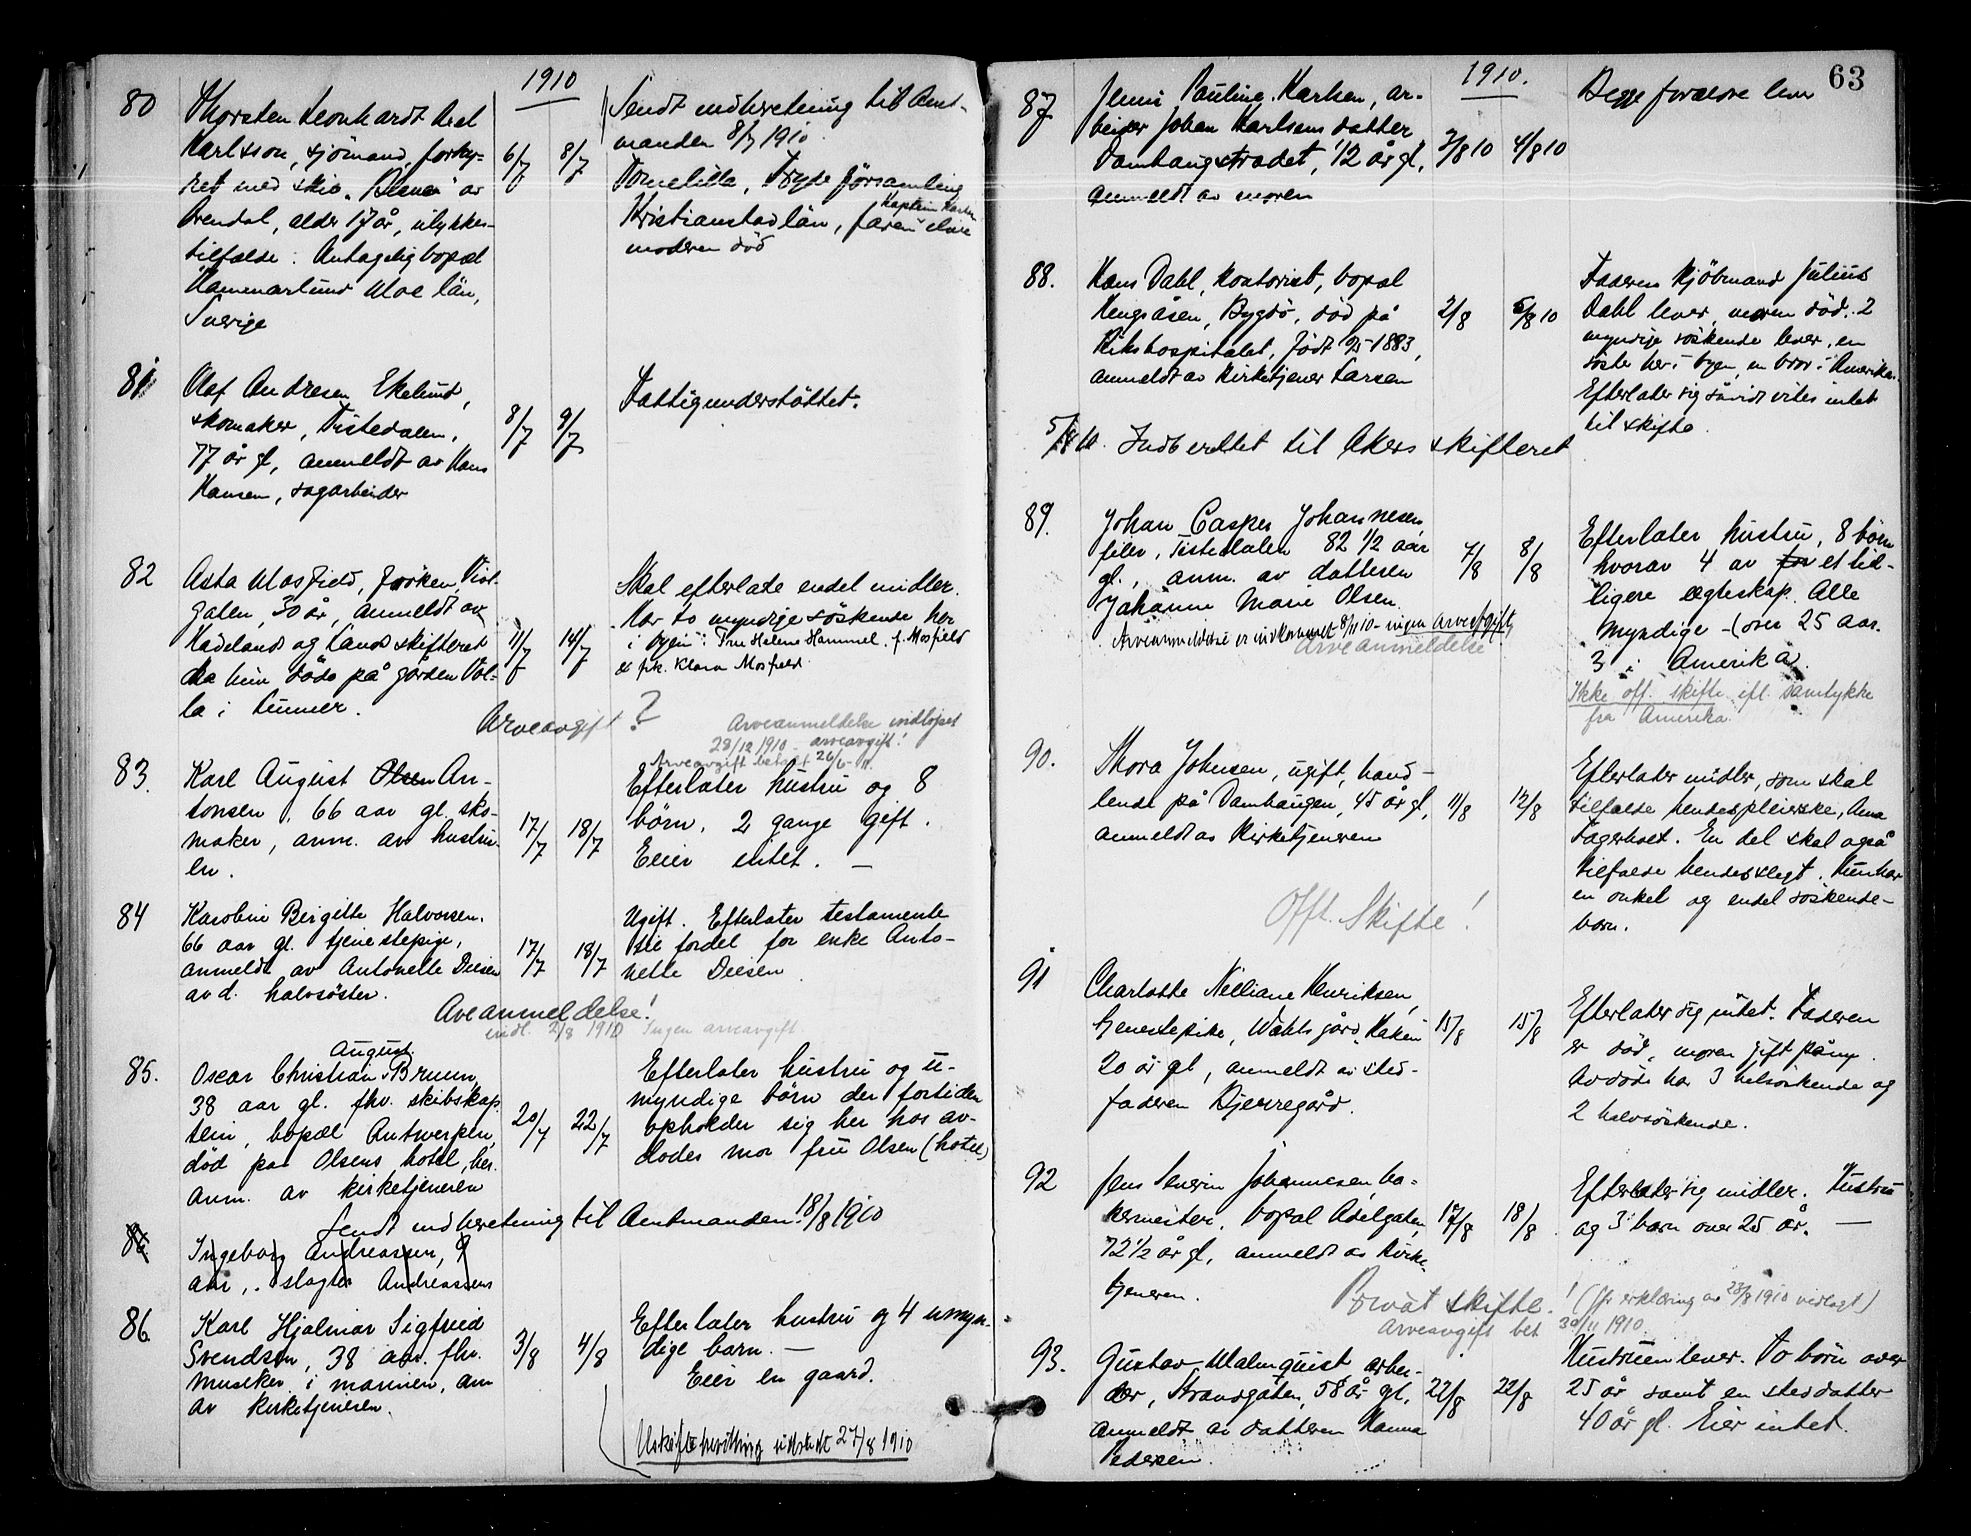 1910
80
Thorsten Leonhardt Axel
Karlsson, sjömand, forhy-
ret med skib „ av
Arendal, alder 17 år, ulykkes-
tilfælde. Antagelig bopæl
Hammarlund län,
Sverige
6/7 8/7
Sendt indberetning til Amt-
manden 8/7 1910
Tomelilla, Tryde församling
Kaptein
Kristianstad län, faren
moderen död
81
Olaf Andresen Ekelund,
skomaker, Tistedalen,
77 år gl, anmeldt av Hans
Hansen, sagarbeider
8/7 9/7
Fattigunderstöttet.
82
Asta Mosfjeld, fröken, Vist-
galen, 30 år, anmeldt av
Hadeland og Lands skifteret
da hun döde på gården Vol-
la i Lunner.
11/7 14/7
Skal efterlate endel midler.
Har to myndige söskende her
i byen: Fru Helene Hammel f. Mosfjeld
& frk. Klara Mosfjeld.
Arveavgift ?
Arveanmeldelse indlöpet
28/12 1910 - arveavgift!
Arveavgift betalt 26/6 - 11.
83.
Karl August Olsen An-
tonsen, 66 aar gl. sko-
maker, anm. av hustru-
en.
17/7 18/7
Efterlater hustru og 8
börn. 2 gange gift.
Eier intet. —
84
Karoline Birgitte Halvorsen.
66 aar gl. tjenestepige,
anmeldt av Antonette Diesen
avd. halvsöster.
17/7 18/7
Ugift. Efterlater testamente
til fordel for enke Anto-
nette Diesen
Aveanmeldelse!
indl. 2/8 1910 Ingen arveavgift.
85.
August
Oscar Christian Bruun
38 aar gl. fhv. skibskap-
tein, bopæl Antwerpen,
död paa Olsens hotel, her.
Anm. av kirketjeneren
20/7 22/7
Efterlater hustru og u-
myndige börn der fortiden
opholder sig her hos av-
dödes mor fru Olsen (hotel)
Sendt indberetning til Amtmanden 18/8 1910
86
Ingeborg Andreassen, 9
aar, slagter Andreassens
86
Karl Hjalmar Sigfried
Svendsen, 38 aar. fhv.
musiker i marinen, anm
av kirketjeneren.
3/8 4/8
Efterlater hustru og 4 umyn-
dige barn. —
Eier en gaard.
Uskiftebevilling utstedt 27/8 1910
63
1910.
87
Jenni Pauline Karlsen, ar-
beider Johan Karlsens datter
Damhaugstrædet, 1/2 år gl,
anmeldt av moren
3/8 10 4/8 10
Begge forældre lever
88.
Hans Dahl, kontorist, bopæl
Hengsåsen, Bygdö, död på
Rikshospitalet, födt 1883,
anmeldt av kirketjener Larsen
2/8 5/8 10
Faderen kjöbmand Julius
Dahl lever, moren död. 2
myndige söskende lever, en
söster her i byen, en bror i Amerika.
Efterlater sig såvidt vites intet
til skifte.
5/8 10. Indberettet til Akers skifteret
89.
Johan Casper Johannesen
filer, Tistedalen 82 1/2 aar
gl., anm. av datteren
Johanne Marie Olsen.
7/8 8/8
Arveanmeldelse er indkommet 8/11 10 - ingen Arveafgift
Arveanmeldelse
Efterlater hustru, 8 börn
hvorav 4 av for et tid-
ligere ægteskap. Alle
myndige - (over 25 aar.
3 i Amerika.
Ikke off. skifte ifl. samtykke
fra Amerika.
90.
Thora Johnsen, ugift, hand-
lende på Damhaugen, 45 år gl,
anmeldt av kirketjeneren
11/8 12/8
Efterlater midler, som skal
tilfalde hendes pleierske, Anna
Fagerholt. En del skal også
tilfalde hendes slegt. Hun har
en onkel og endel söskende-
barn.
Offt. Skifte!
91
Charlotte Nelliane Henriksen,
tjenestepike, Wahls gård,
20 år gl, anmeldt av sted-
faderen Bjerregård.
15/8 15/8
Efterlater sig intet. Faderen
er död, moren gift påny.
Avdöde har 3 helsöskende og
2 halvsöskende.
92
Jens Severin Johannesen, ba-
kermester, bopæl Adelgaten,
72 1/2 år gl, anmeldt av kirke-
tjeneren.
17/8 18/8
Efterlater sig midler. Hustru
og 3 barn over 25 år. —
Privat skifte! (jfr erklæring av 23/8 1910 vidlagt)
Arveavgift bet 30/11 1910
93.
Gustav Malmquist, arbei-
der, Strandgaten, 58 år gl,
anmeldt av datteren Hanna
Pedersen.
22/8 22/8
Hustruen lever. To börn over
25 år samt en steddatter
40 år gl. Eier intet.